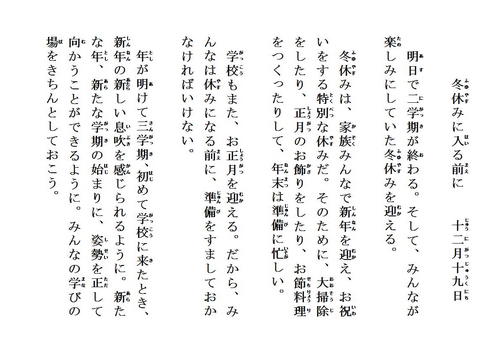 冬休みに入る前に　　十二月十九日
明日で二学期が終わる。そして、みんなが
楽しみにしていた冬休みを迎える。
冬休みは、家族みんなで新年を迎え、お祝
いをする特別な休みだ。そのために、大掃除
をしたり、正月のお飾りをしたり、お節料理
をつくったりして、年末は準備に忙しい。
学校もまた、お正月を迎える。だから、み
んなは休みになる前に、準備をすましておか
なければいけない。
年が明けて三学期、初めて学校に来たとき、
新年の新しい息吹を感じられるように。新た
な年、新たな学期の始まりに、姿勢を正して
向かうことができるように。みんなの学びの
場をきちんとしておこう。